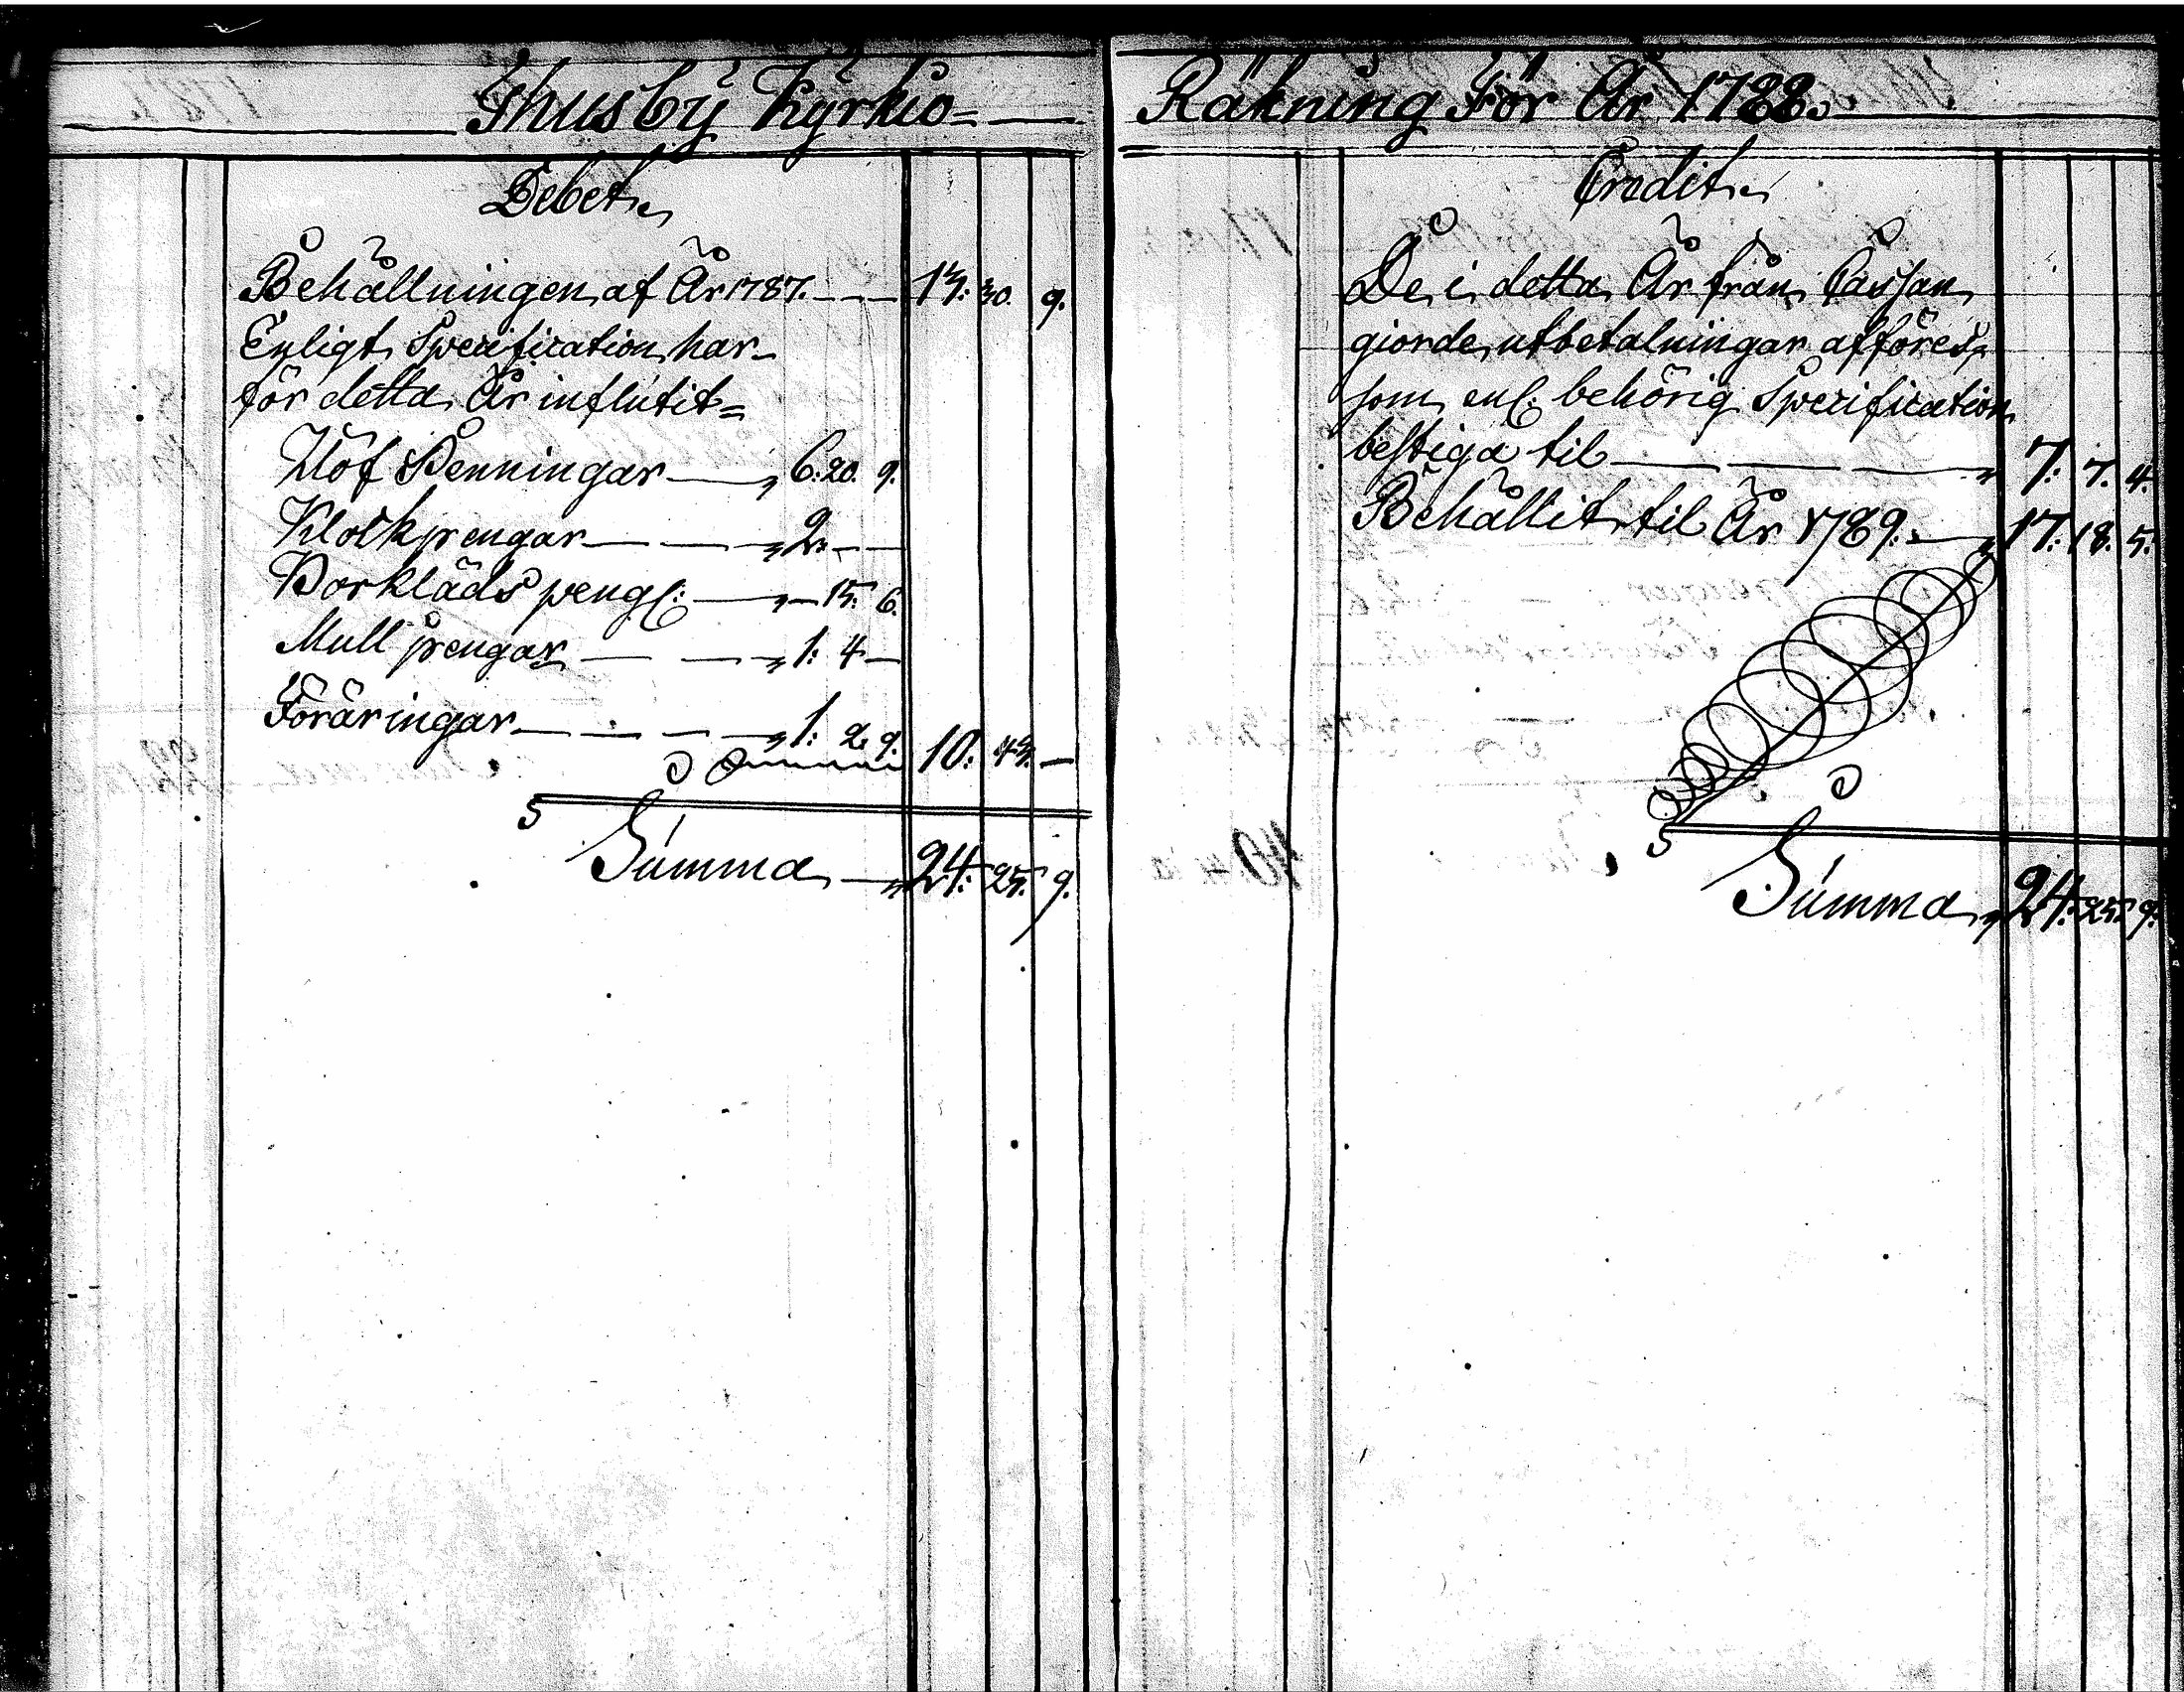 Kyrkio= Räkning För År 1788.
Debet.
Behållningen af År 1787. 13: 30. 9.
Enligt Specification har
för detta År influtit=
Håf Penningar 6: 20. 9.
Klockpengar 2. — —
Borkläds pengr: — 15: 6.
Mull pengar 1: 4 —
Föräringar 1: 2. 9. 10: 43. —
Summa 24: 25. 9.
Credit.
De i detta År från Cassan
giorde utbetalningar afföres,
som enl: behörig Specification
bestiga til 7: 7. 4.
Behållit til År 1789. 17: 18. 5.
Summa 24: 25. 9.